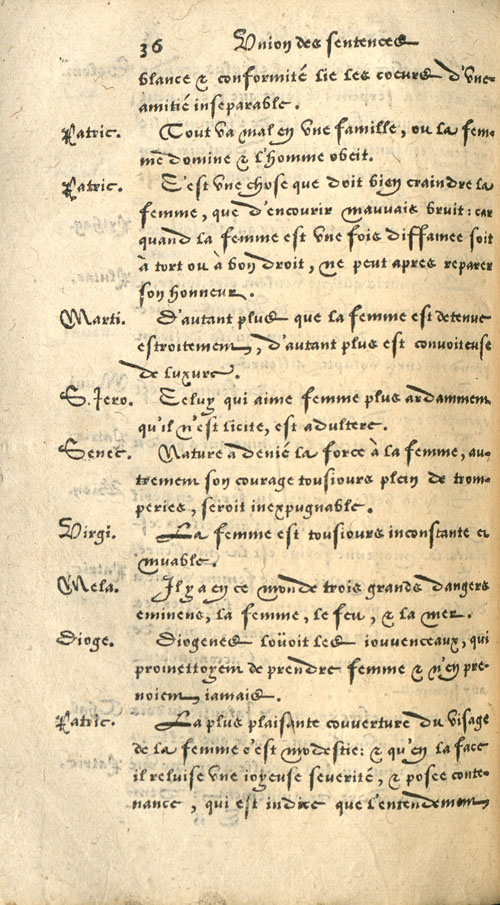 36 Vnion des sentences
blance & conformité lie les coeurs d'vne
amitié inseparable.
Patric. Tout va mal en vne famille, ou la fem-
me domine & l'homme obeit.
Patric. C'est vne chose que doit bien craindre la
femme, que d'encourir mauvais bruit: car
quand la femme est vne fois diffamee soit
à tort ou à bon droit, ne peut apres reparer
son honneur.
Marti. D'autant plus que la femme est detenue
estroitement, d'autant plus est convoiteuse
de luxure.
S. Iero. Celuy qui aime femme plus ardamment
qu'il n'est licite, est adultere.
Senec. Nature a denié la force à la femme, au-
trement son courage tousiours plein de trom-
peries, seroit inexpugnable.
Virgi. La femme est tousiours inconstante et
muable.
Mela. Il y a en ce monde trois grands dangers
eminens, la femme, le feu, & la mer.
Dioge. Diogenes loüoit les iouvenceaux, qui
promettoyent de prendre femme & n'en pre-
noient iamais.
Patric. La plus plaisante couverture du visage
de la femme c'est modestie: & qu'en la face
il reluise vne ioyeuse severité, & posee conte-
nance, qui est indice que l'entendement